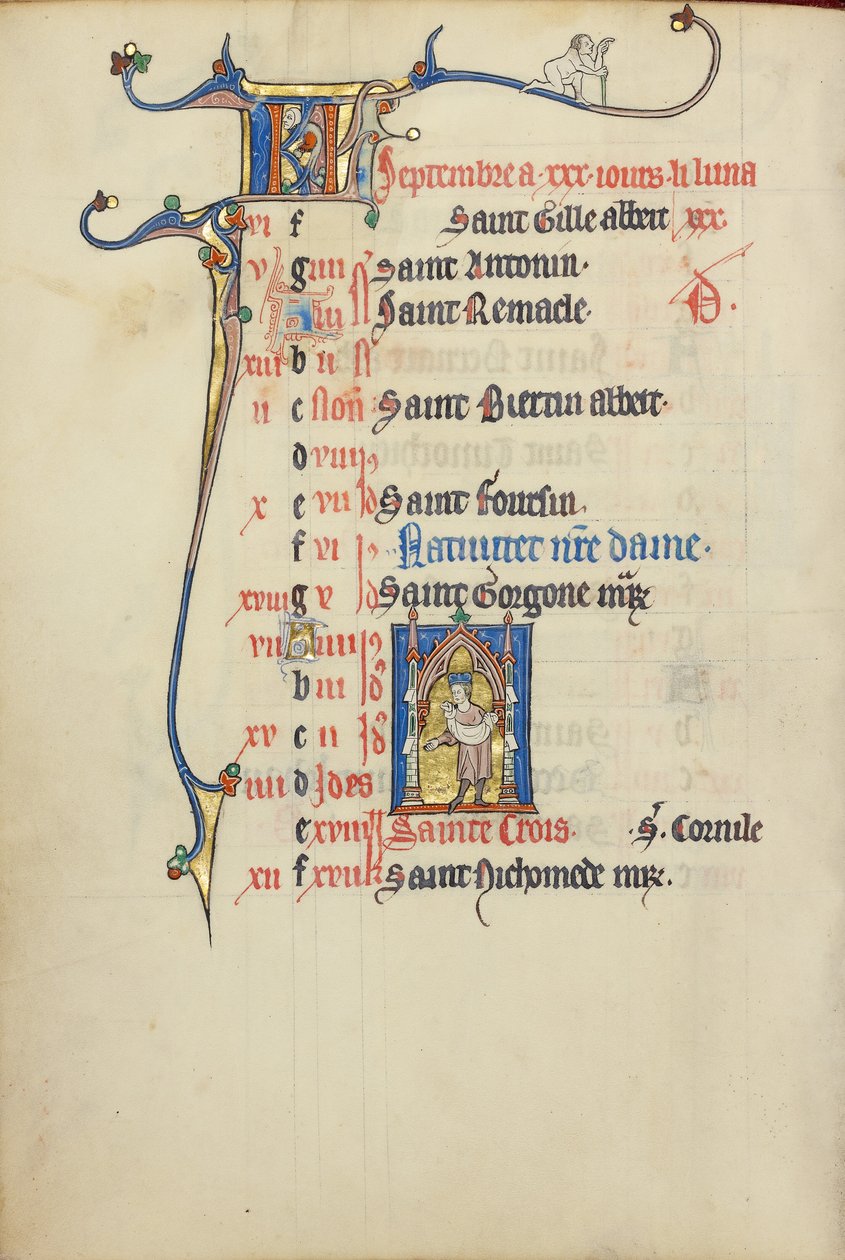 KL Septembre a · xxx · iours · li luna
vi f Saint Gille abbeit xxx ·
v g iiii Saint Antonin ·
A iii Saint Remacle · D ·
xiii b ii
ii c Non Saint Biertin abbeit ·
d viii id
x e vii id Saint foursin ·
f vi id Natiuitet nr̃e dame ·
xviii g v id Saint Gorgone mr̃
vii A iiii id
b iii id
xv c ii id
iiii d Ides
e xviii kl Sainte Crois · · S̃ · Cornile
xii f xvii kl Saint Nichomede mr̃ ·